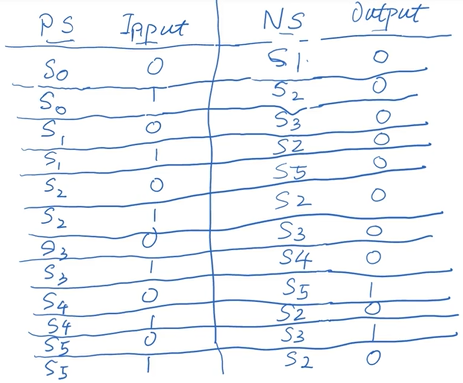 PS Input NS Output
S0 0 S1 0
S0 1 S2 0
S1 0 S3 0
S1 1 S2 0
S2 0 S5 0
S2 1 S2 0
S3 0 S3 0
S3 1 S4 0
S4 0 S5 1
S4 1 S2 0
S5 0 S3 1
S5 1 S2 0